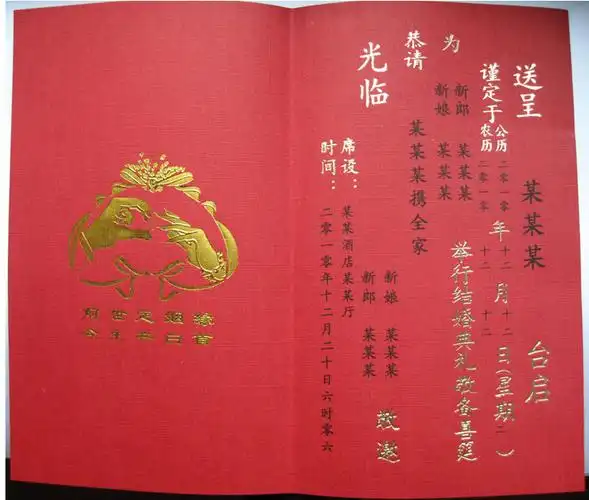 送呈 某某某 台启
谨定于 公历 二零一零 年 十二 月 十二 日(星期 二)
农历 二零一零 十二 十二
为 新郎 某某某 举行结婚典礼敬备喜筵
新娘 某某某
恭请 某某某携全家
光临
新娘 某某某 敬邀
新郎 某某某
席设：某某酒店某某厅
时间：二零一零年十二月二十日六时零六
前世定姻缘
今生共白首